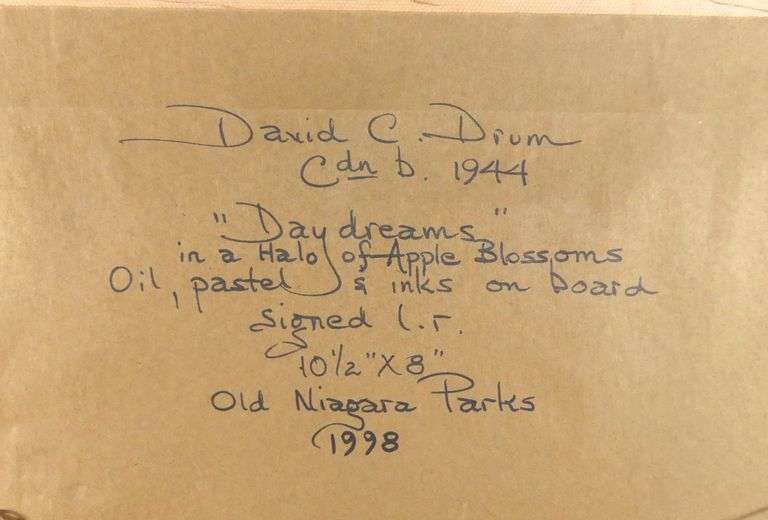 David C. Drum
Cdn b. 1944
"Daydreams"
in a Halo of Apple Blossoms
Oil, pastel & inks on board
signed l.r.
10 1/2" X 8"
Old Niagara Parks
1998